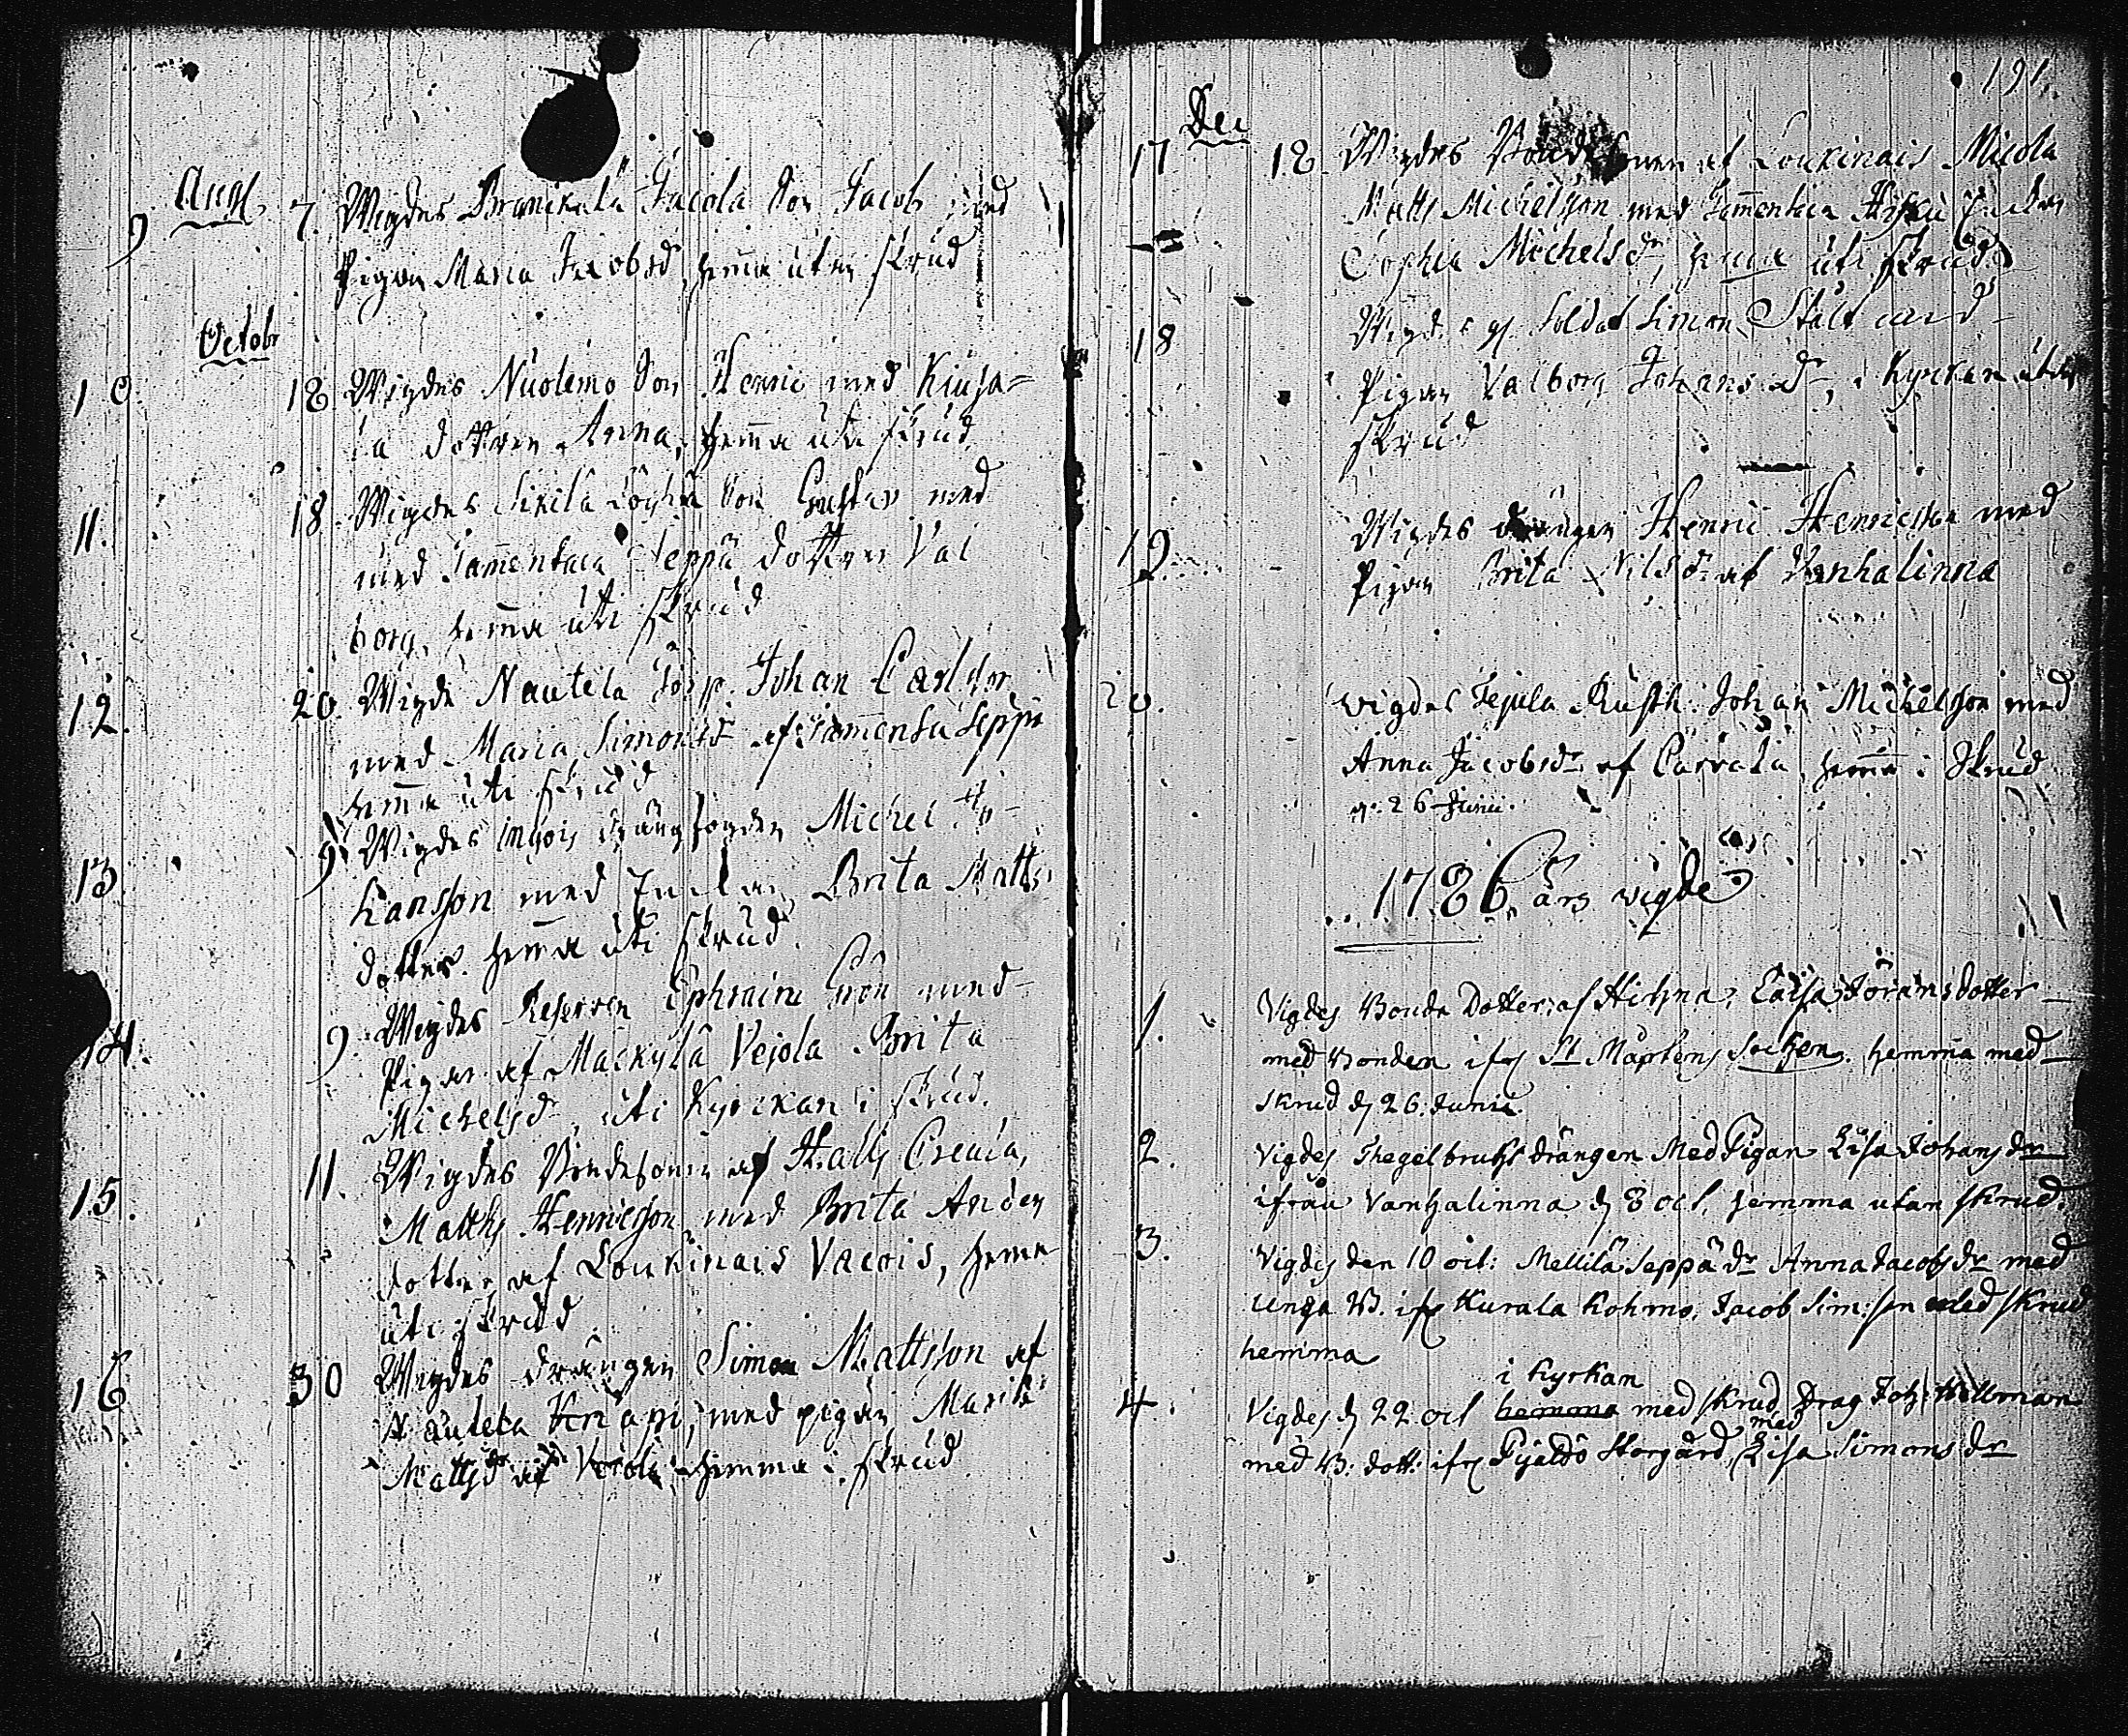 Aug.
9 7. Wigdes Brunckala Jacola Son Jacob med
Pigan Maria Jacobsd, hema utan skrud
Octobr
10. 18 Wigdes Nuolemo Son Henric med Kiusa=
la dottren Anna, hema uti skrud
11. 18. Wigdes Sikila Son Gustav med
med Tamentaca Seppä dottren Val
borg, hema uti skrud
12. 20. Wigde Nautela Johan Carlson
med Maria Simonsd af Tamentu Seppä
hema uti skrud
13. 9 Wigdes Michel
hansson med Brita Matts
dotter hema uti skrud
14. 9. Wigdes Reserven Ephraim Grön med
Pigan af Mackylä Vejola Brita
Michelsd, uti Kyrckan i skrud.
15. 11. Wigdes Bondesonen af Hallis
Matths Henricsson med Brita Anders
dotter af Loukinais Vacois, hema
uti skrud
16 30 Wigdes drängen Simon Mattsson af
Nautela Knapi, med pigan Maria
Mattsdr af Vejola hemma i skrud
191.
Dec
17 18. Wigdes af Loukinais Micola
Matts Michelsson med Tamentaca
Sophia Michelsd, hema uti skrud
18 Wigdes Soldat Simon Stålt med
Pigan Valborg Johansd, i Kyrckan utan
skrud
19. Wigdes drängen Henric Henricsson med
Pigan Brita Nilsd af Vanhalinna
20. Wigdes Tejula Rusth: Johan Michelsson med
Anna Jacobsdr af Carrala, hema i skrud
26 Junii.
1786 års vigde
1. Vigdes Bonde Dotter af Hihna, Caisa Jöransdotter
med Bonden ifr St Mårtens Socken hemma med
skrud d 26. Junii.
2. Vigdes Thegelbruks drängen Med Pigan Lisa Johansdr
ifrån Vanhalinna d 8 oct, hemma utan skrud.
3. Vigdes den 10 oct: Mellilä Seppä dr Anna Jacobsdr med
Unga B. ifr Kurala Kohmo, Jacob Sim:son med skrud
hemma
i Kyrkan
4. Vigdes d 22 oct hemma med skrud Drag Joh: Hellman
med
med B: dott: ifr Pijaldo Storgård, Lisa Simonsdr